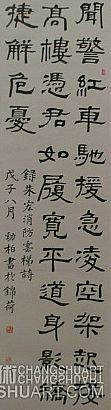 聞警紅車馳援急凌空架欵
高樓憑君如履寬平道身影
捷解危憂
錄朱宏消防雲梯詩
戊子八月 勁柏書於錦荷